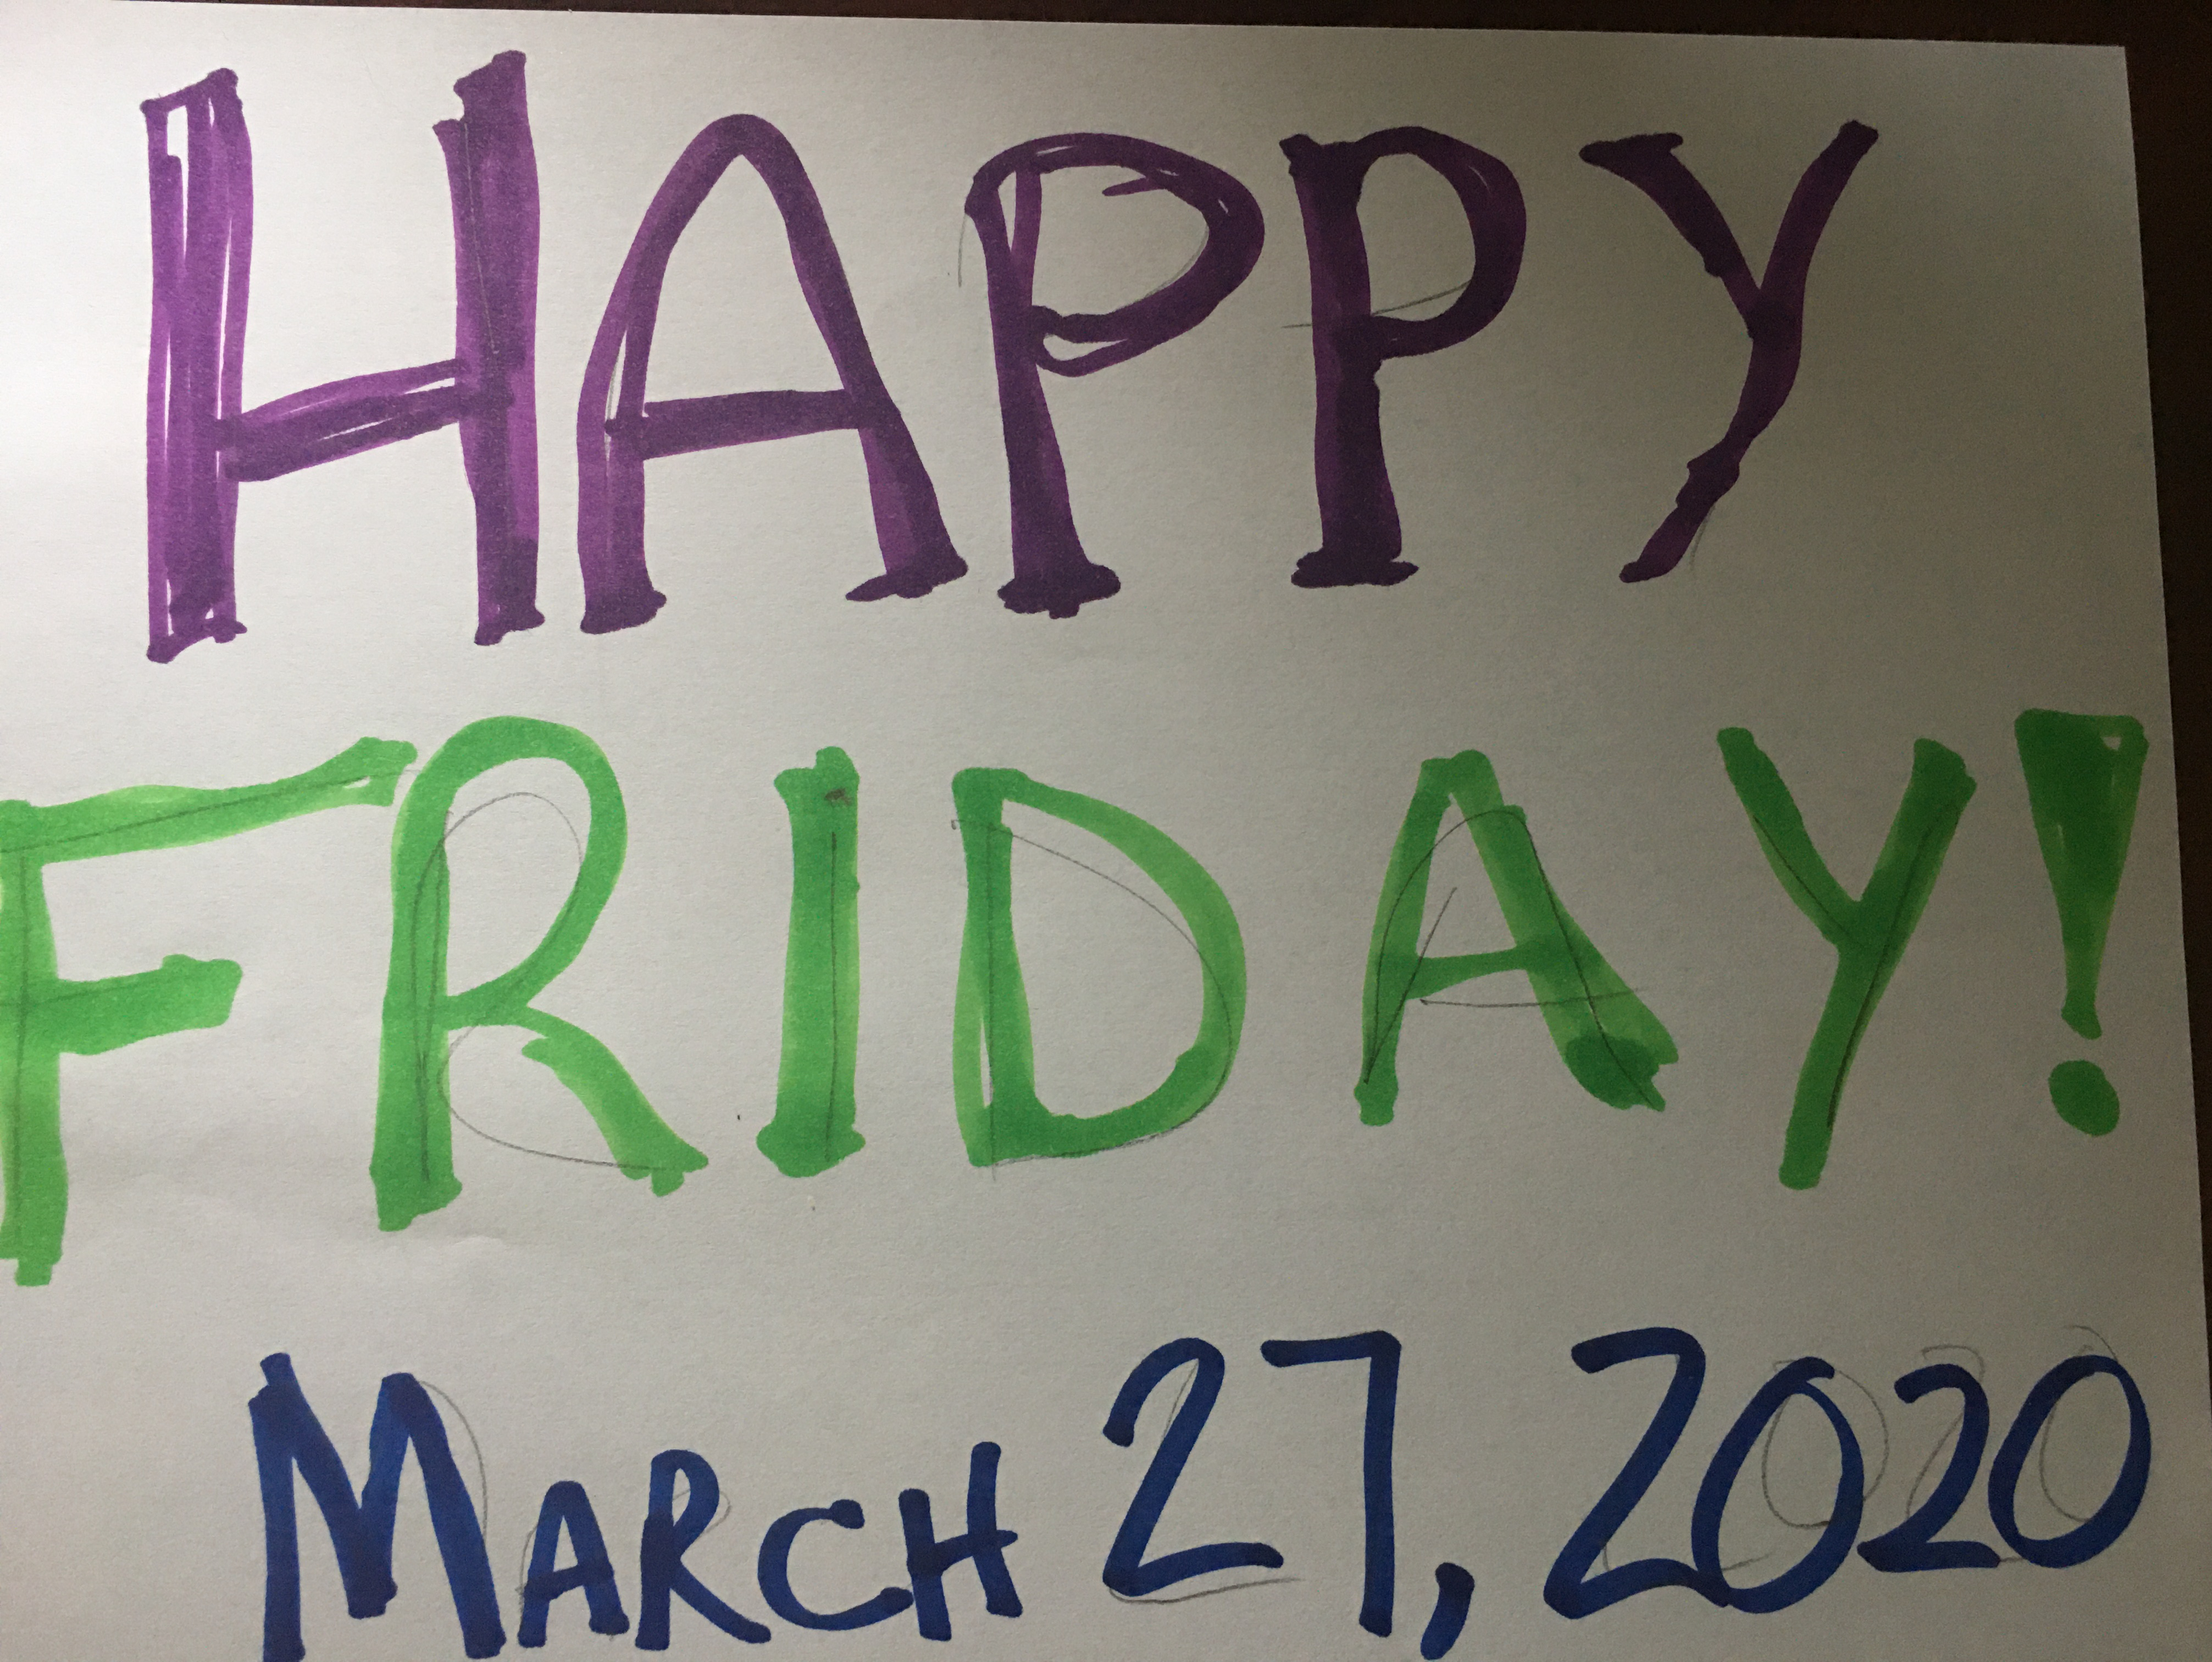 HAPPY
FRIDAY!
MARCH 27, 2020